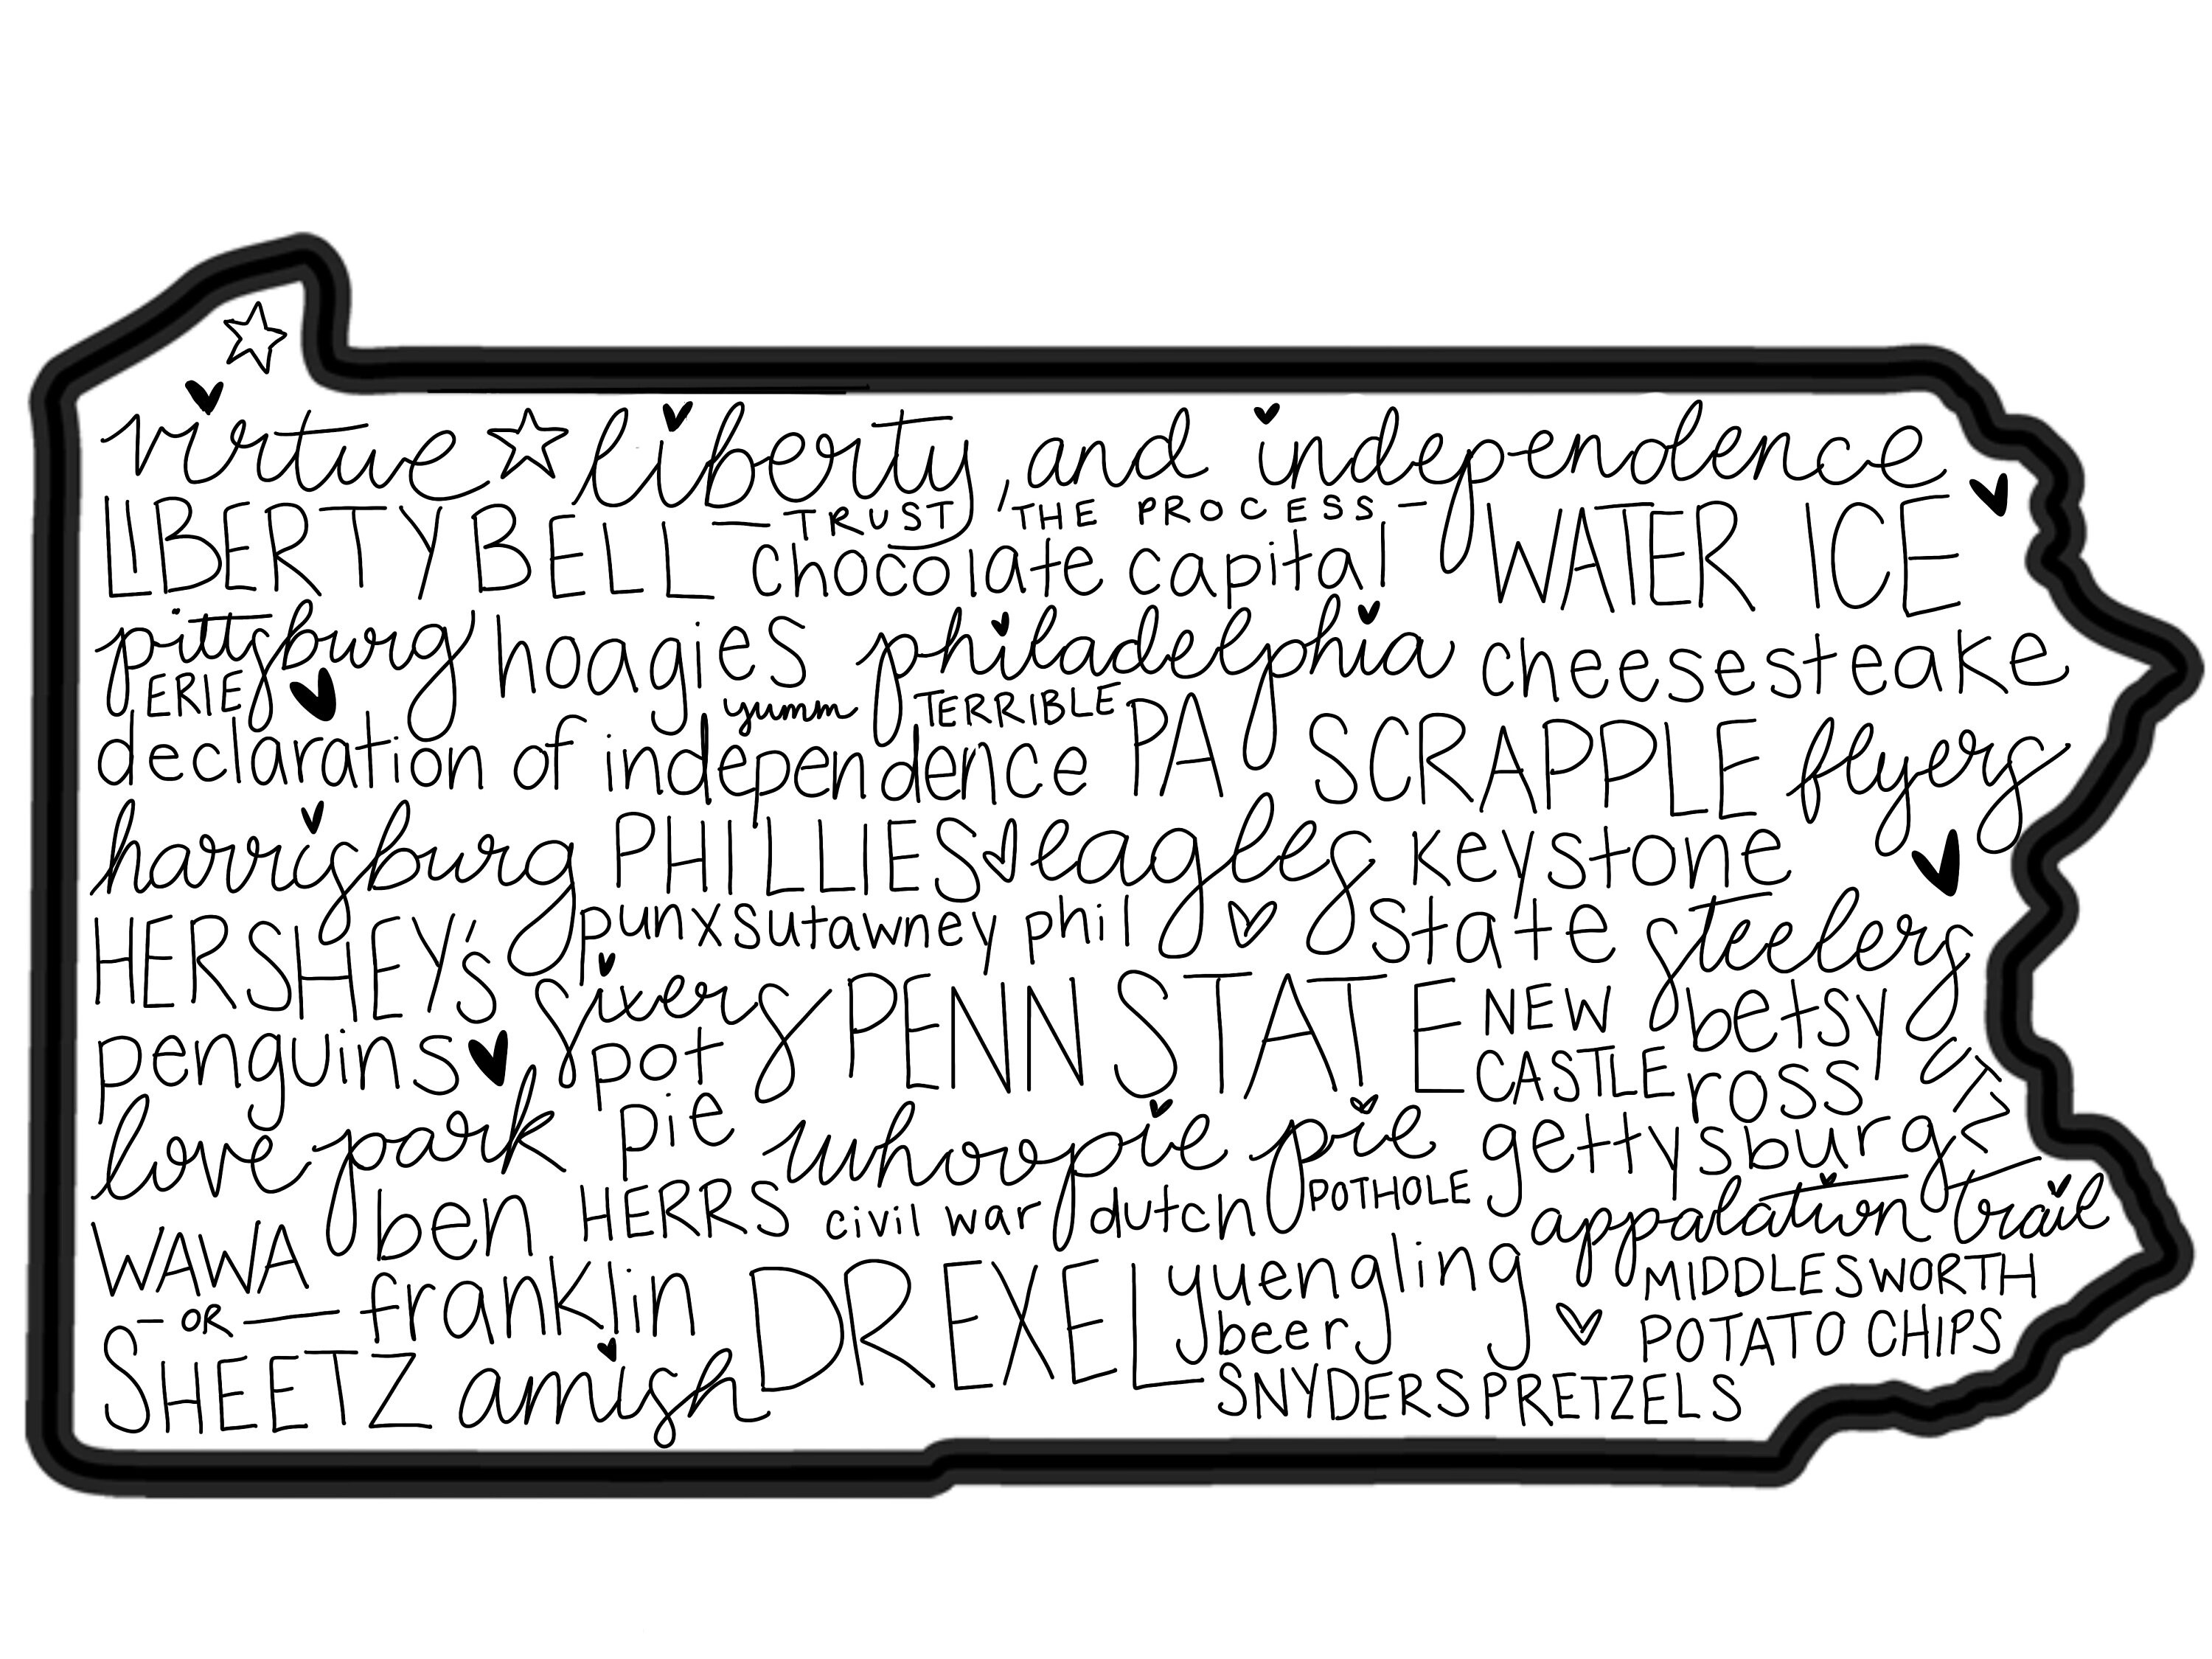 virtue liberty, and independence
LIBERTY BELL - TRUST THE PROCESS - WATER ICE
chocolate capital
pittsburg hoagies philadelphia cheesesteake
ERIE yumm TERRIBLE
declaration of independence PA SCRAPPLE flyers
harrisburg PHILLIES eagles keystone
HERSHEY's punxsutawney phil state steelers
penguins sixers PENN STATE NEW betsy
pot CASTLE ross UTZ
love park pie whoopie pie gettysburg
WAWA ben HERRS civil war dutch POTHOLE appalation trail
- OR - franklin DREXEL yuengling MIDDLESWORTH
beer POTATO CHIPS
SHEETZ amish SNYDERS PRETZELS